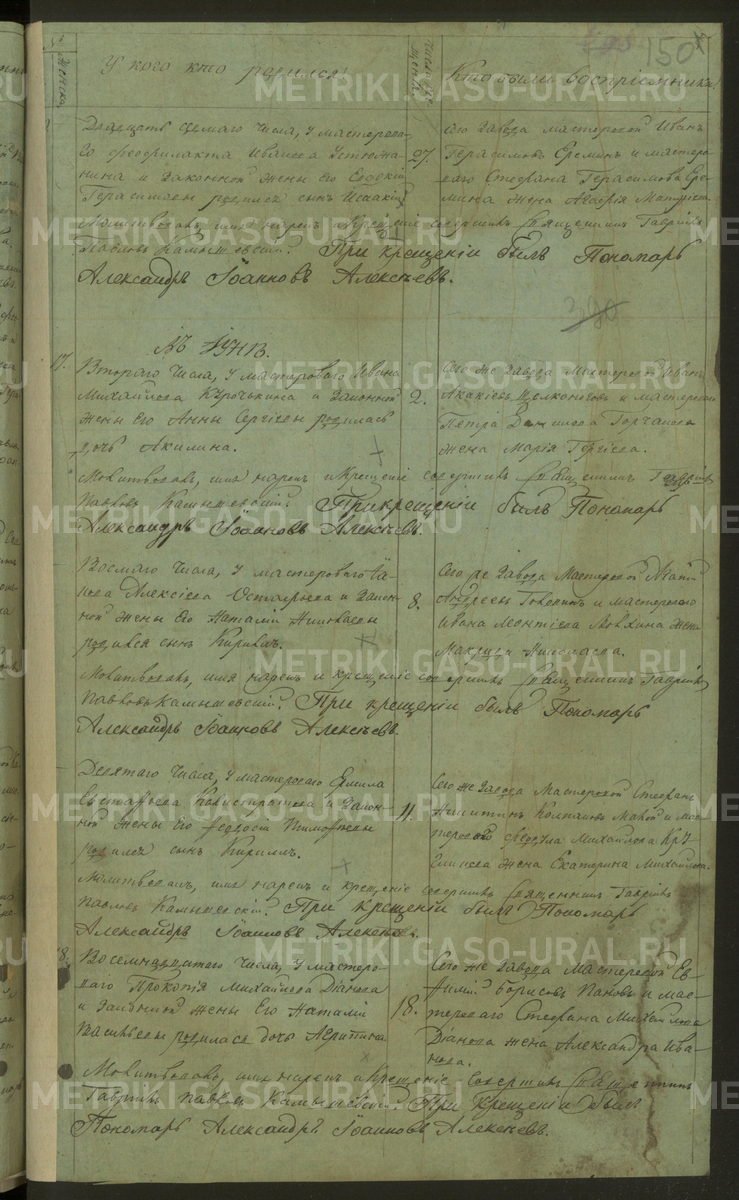 150
№
Женска
У кого кто родился
Кто были воспріемники
METRIKI.GASO-URAL.RU
Двадцать седмаго числа, у мастерова-
го Феофилакта Иванова Устюжа-
нина и законной жены его Евдокіи
Герасимовы родился сынъ Исаакій
27.
сего завода мастеровой Иванъ
Герасимовъ Ереминъ и мастеро-
ваго Стефана Герасимова Ере-
мина жена
Молитвовалъ, имя нарекъ и крещеніе совершилъ Священникъ Гавріилъ
Павловъ Камышевскій. При крещеніи былъ Пономарь
Александръ Іоанновъ Алексѣевъ.
380
Въ Іунѣ.
17.
Втораго числа, у мастероваго Ивана
Михайлова и законной
жены его Анны Сергіевы родилась
дочь Акилина.
2.
Сего же завода мастеровой Иванъ
Акакіевъ и мастероваго
Петра Данилова Горчакова
жена Марія Георгіева.
Молитвовалъ, имя нарекъ и крещеніе совершилъ Священникъ Гавріилъ
Павловъ Камышевскій. При крещеніи былъ Пономарь
Александръ Іоанновъ Алексѣевъ.
Восмаго числа, у мастероваго
Алексіева Остафьева и закон-
ной жены его Наталіи Николаевы
родился сынъ Кириллъ.
8.
Сего же завода мастеровой
Андреевъ и мастероваго
Ивана Леонтіева жена
Макрида Николаева.
Молитвовалъ, имя нарекъ и крещеніе совершилъ Священникъ Гавріилъ
Павловъ Камышевскій. При крещеніи былъ Пономарь
Александръ Іоанновъ Алексѣевъ.
Десятаго числа, у мастероваго Ермила
Евстафьева Калистратова и закон-
ной жены его Федосьи Тимофеевы
родился сынъ Кириллъ.
11.
Сего же завода мастеровой Стефанъ
Никитинъ и мас-
тероваго Михайлова
жена Екатерина Михайлова.
Молитвовалъ, имя нарекъ и крещеніе совершилъ Священникъ Гавріилъ
Павловъ Камышевскій. При крещеніи былъ Пономарь
Александръ Іоанновъ Алексѣевъ.
18.
Восемнадцатаго числа, у мастеро-
ваго Прокопія Михайлова Діанова
и законной жены его Наталіи
Васильевы родилася дочь Агриппина
18.
Сего же завода мастеровой Ев-
фимій Борисовъ Пановъ и мас-
тероваго Стефана Михайлова
Діанова жена Александра Ива-
нова.
Молитвовалъ, имя нарекъ и крещеніе совершилъ Священникъ
Гавріилъ Павловъ Камышевскій. При крещеніи былъ
Пономарь Александръ Іоанновъ Алексѣевъ.